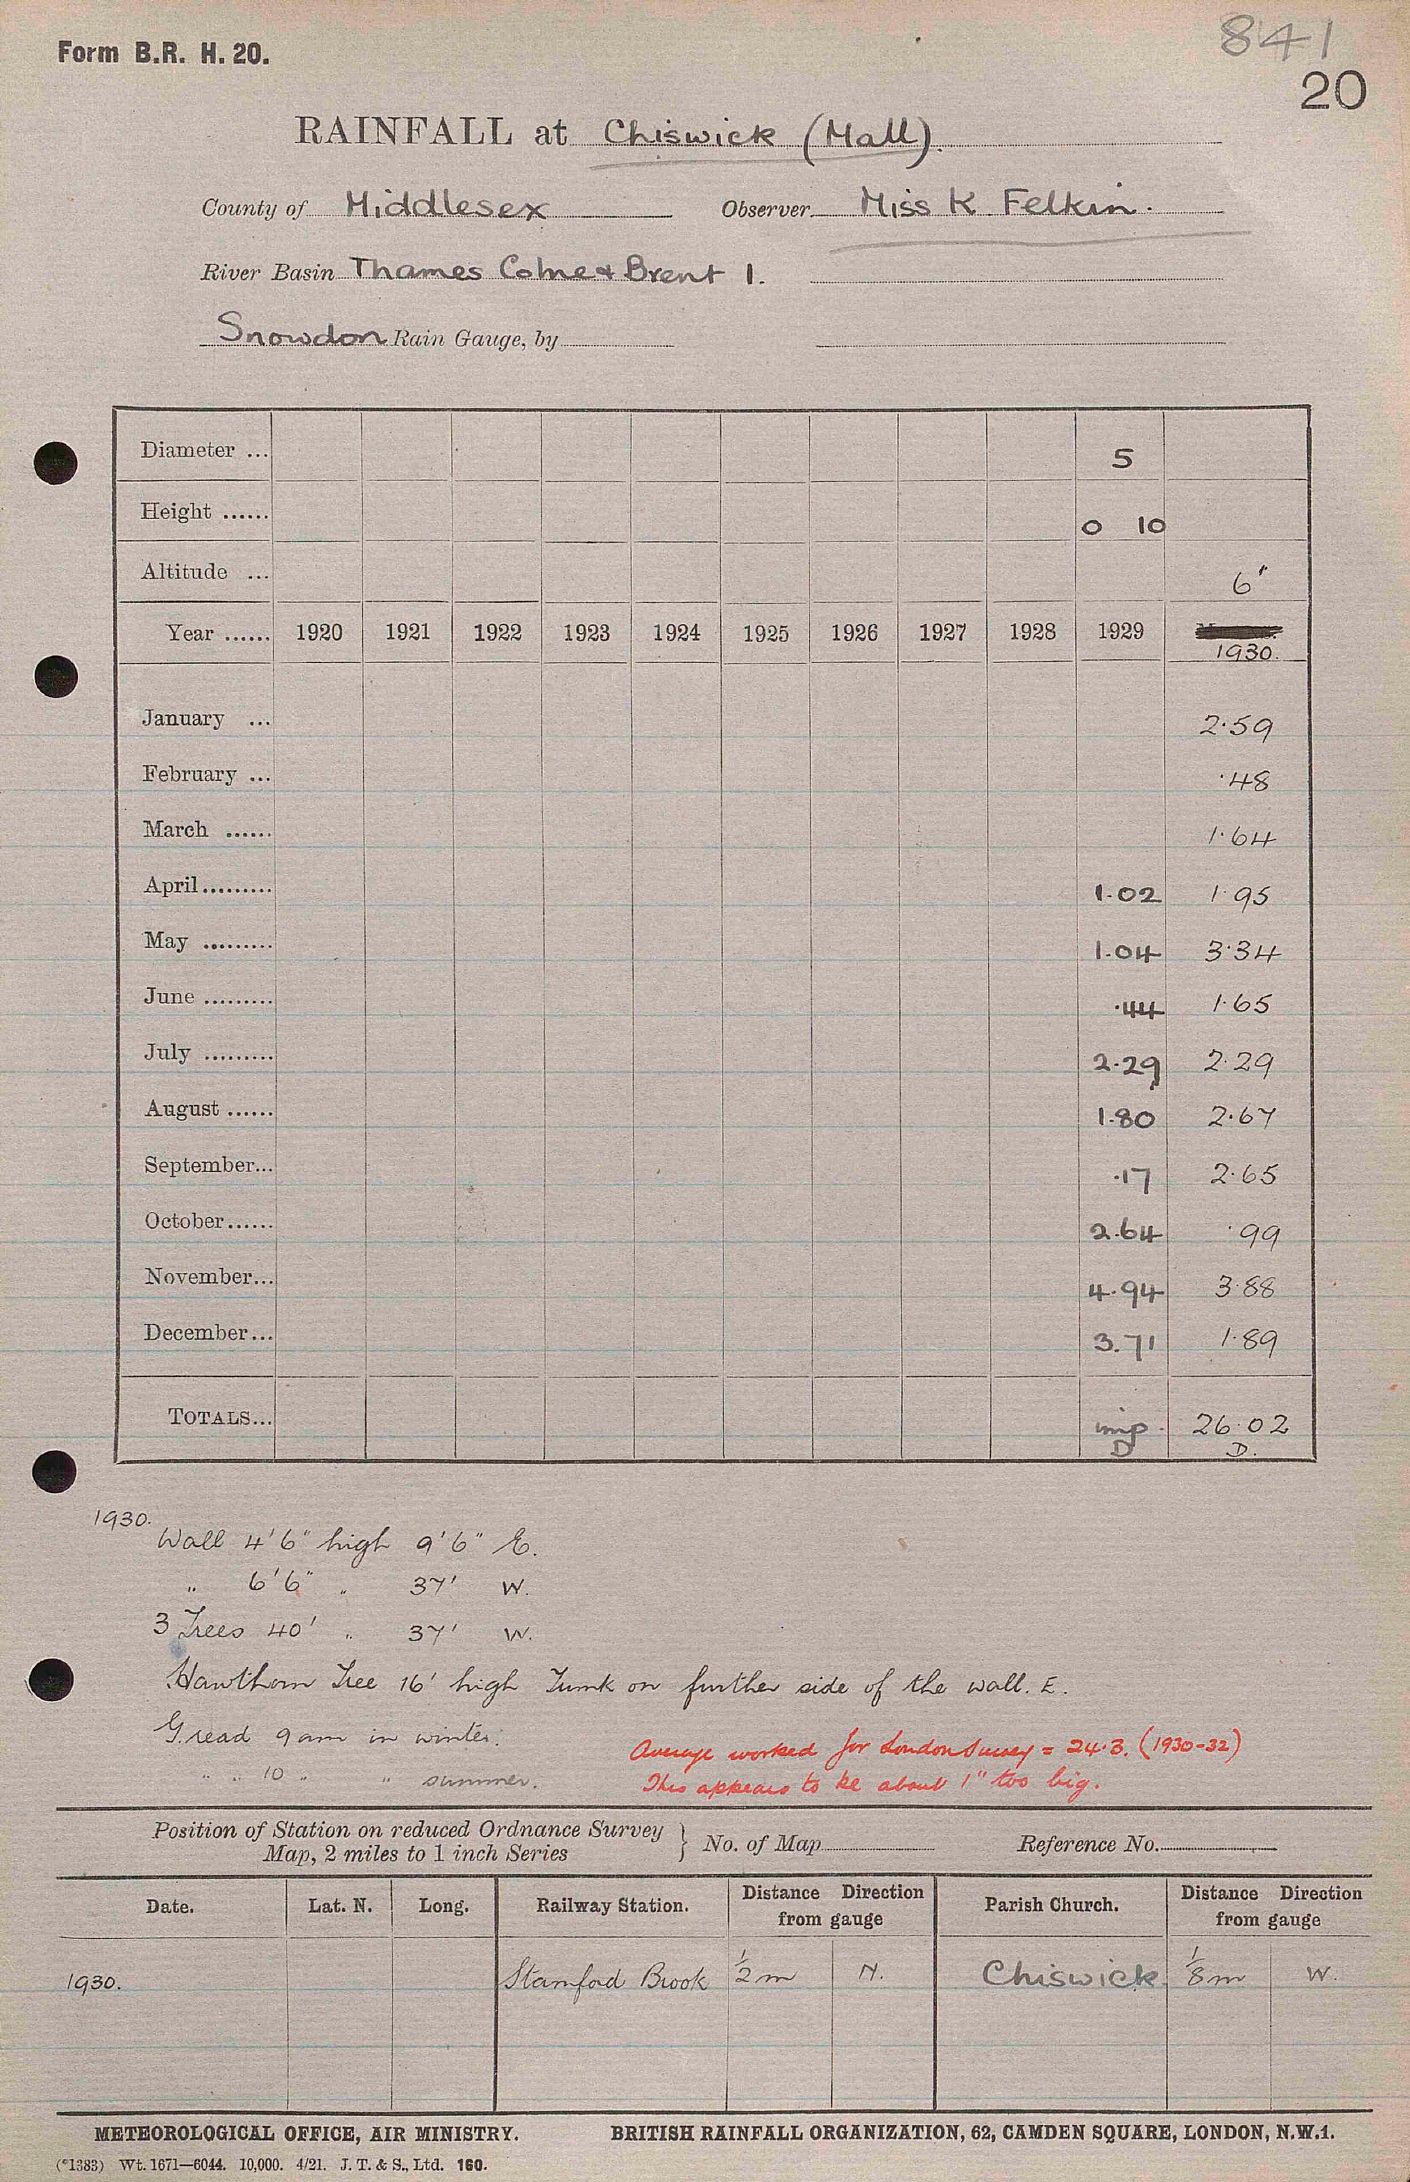 841
Form B.R. H. 20.
20
RAINFALL at Chiswick (Mall).
County of Middlesex Observer Miss K Felkin.
River Basin Thames Colne & Brent 1.
Snowdon Rain Gauge, by
Diameter ... 5
Height ...... 0 10
Altitude ... 6'
Year ...... 1920 1921 1922 1923 1924 1925 1926 1927 1928 1929 1930.
January ... 2.59
February ... .48
March ...... 1.64
April ......... 1.02 1.95
May ......... 1.04 3.34
June ......... .44 1.65
July ......... 2.29 2.29
August ...... 1.80 2.67
September... .17 2.65
October...... 2.64 .99
November... 4.94 3.88
December... 3.71 1.89
TOTALS... imp. 26.02
D D.
1930.
Wall 4'6" high 9'6" E.
" 6'6" " 37' W.
3 Trees 40' " 37' W.
Hawthorn Tree 16' high Trunk on further side of the wall. E.
G. read 9 am in winter.
" " 10 " " summer.
Average worked for London Survey = 24.3. (1930-32)
This appears to be about 1" too big.
Position of Station on reduced Ordnance Survey Map, 2 miles to 1 inch Series } No. of Map Reference No.
Date. Lat. N. Long. Railway Station. Distance Direction from gauge Parish Church. Distance Direction from gauge
1930. Stamford Brook 1/2 m N. Chiswick. 1/8 m W.
METEOROLOGICAL OFFICE, AIR MINISTRY. BRITISH RAINFALL ORGANIZATION, 62, CAMDEN SQUARE, LONDON, N.W.1.
(*1383) Wt. 1671—6044. 10,000. 4/21. J. T. & S., Ltd. 160.